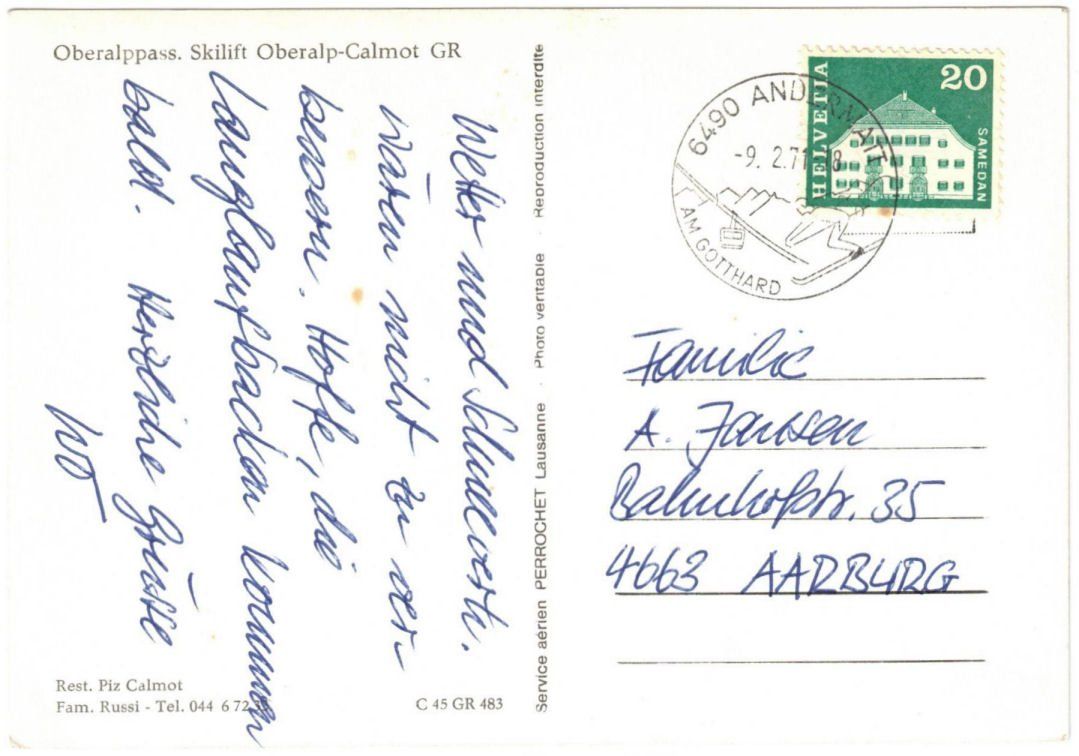 Oberalppass. Skilift Oberalp-Calmot GR
Wetter und Schneeverh.
wären nicht zu ver-
bessern. Hoffe, die
Langlaufbacken kommen
bald. Herzliche Grüsse
Rest. Piz Calmot
Fam. Russi - Tel. 044 6 72
C 45 GR 483
Service aérien PERROCHET Lausanne · Photo véritable · Reproduction interdite
6490 ANDERMATT
-9. 2.71 - 8
AM GOTTHARD
HELVETIA
20
SAMEDAN
Familie
A. Janssen
Bahnhofstr. 35
4663 AARBURG